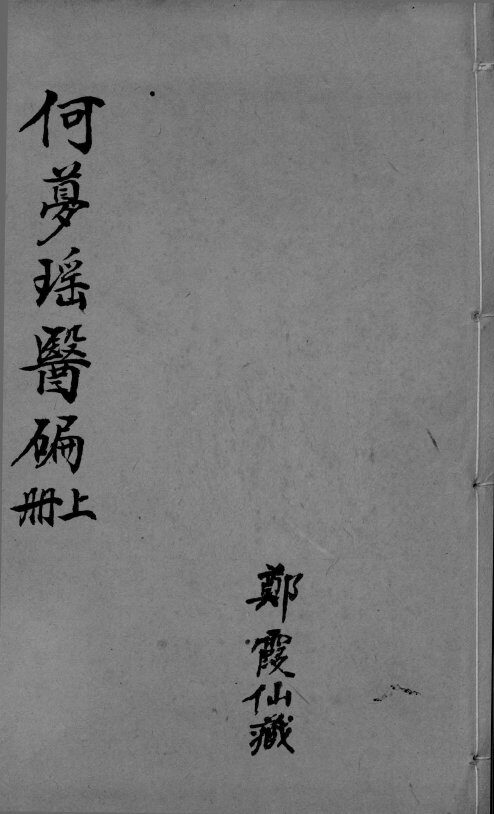 何夢瑶醫碥
上冊
鄭霞仙藏